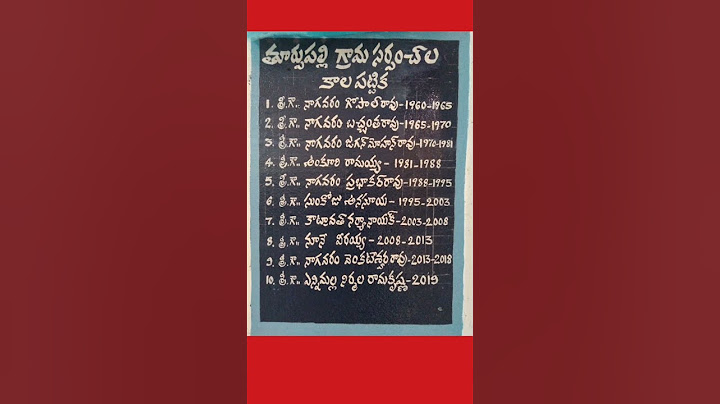 తూర్పుపల్లి గ్రామ సర్పంచ్‌ల
కాల పట్టిక
1. శ్రీ.గౌ.. నాగవరం గోపాల్‌రావు-1960-1965
2. శ్రీ.గౌ.. నాగవరం బచ్చంతరావు-1965-1970
3. శ్రీ.గౌ.. నాగవరం జగన్‌మోహన్‌రావు-1970-1981
4. శ్రీ.గౌ.. అంకూరి రామయ్య - 1981-1988
5. శ్రీ.గౌ.. నాగవరం ప్రభాకర్‌రావు-1988-1995
6. శ్రీ.గౌ.. సుంకోజు అనసూయ - 1995-2003
7. శ్రీ.గౌ.. కాట్రావత్ నర్యానాయక్-2003-2008
8. శ్రీ.గౌ.. నూనే వీరయ్య - 2008-2013
9. శ్రీ.గౌ.. నాగవరం వెంకటేశ్వరరావు-2013-2018
10. శ్రీ.గౌ.. ఎన్నిమల్ల నిర్మల రామకృష్ణ-2019